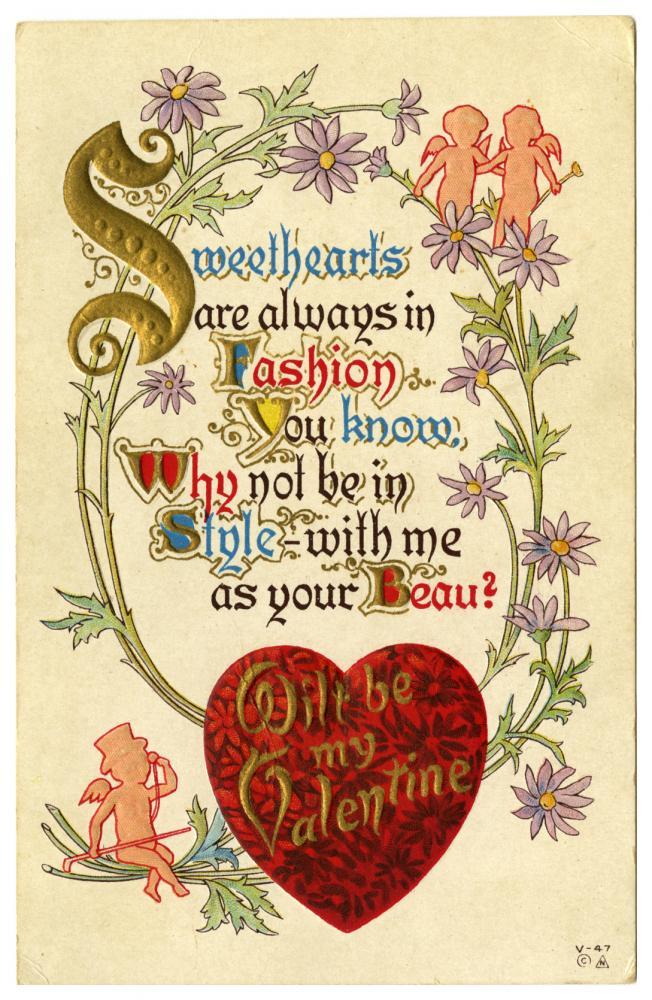 Sweethearts
are always in
Fashion
You know,
Why not be in
Style-with me
as your Beau?
Wilt be
my
Valentine
V-47
© N